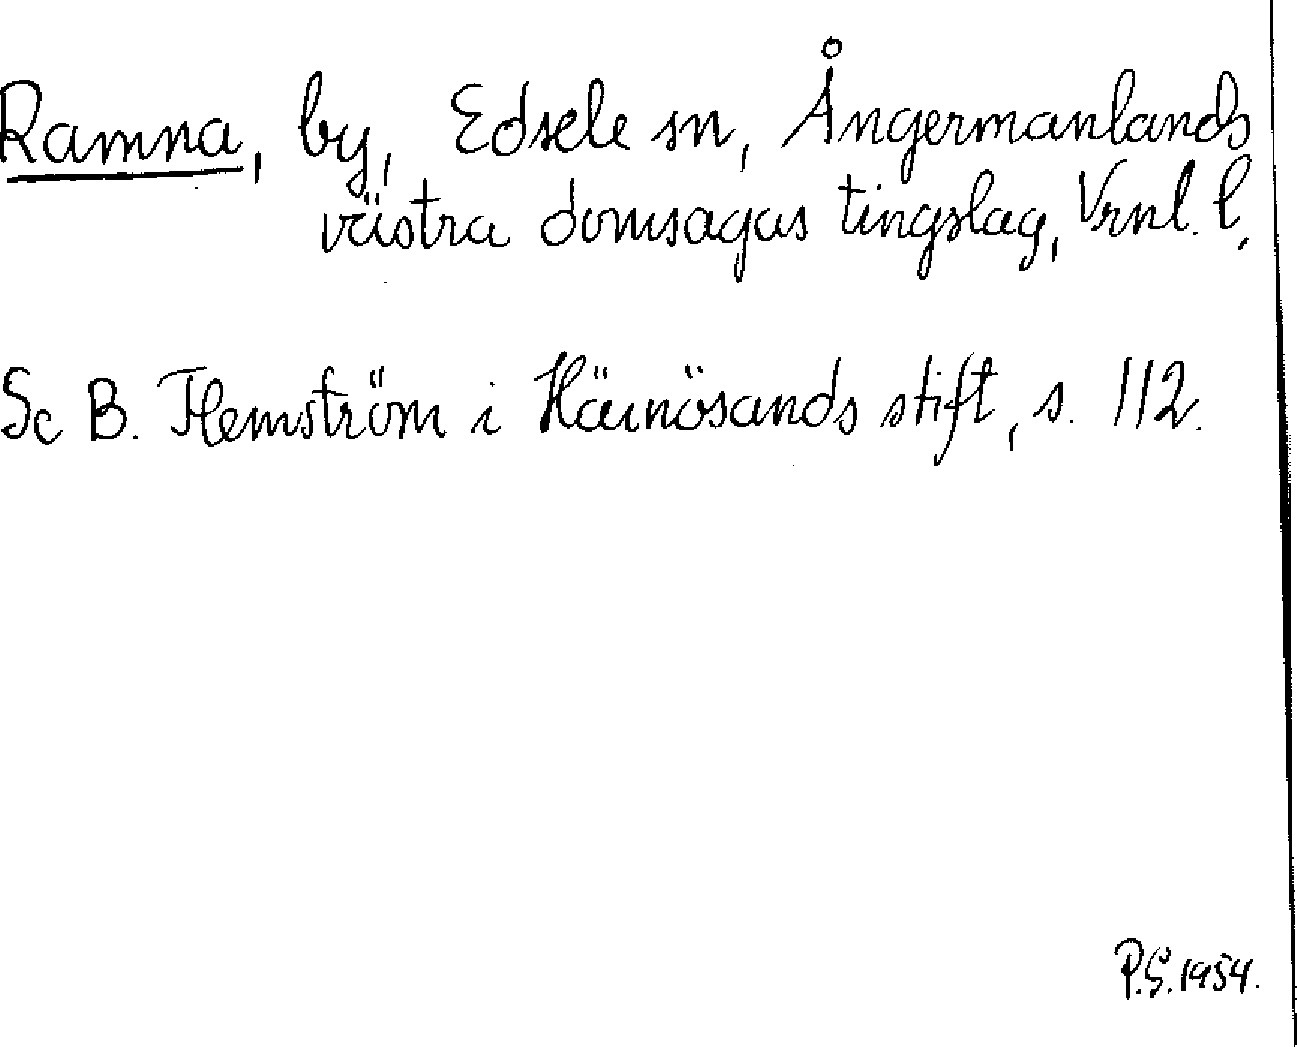 Ramna, by, Edsele sn, Ångermanlands
västra domsagas tingslag, Vrnl. l.
Se B. Flemström i Härnösands stift, s. 112.
P.S. 1954.